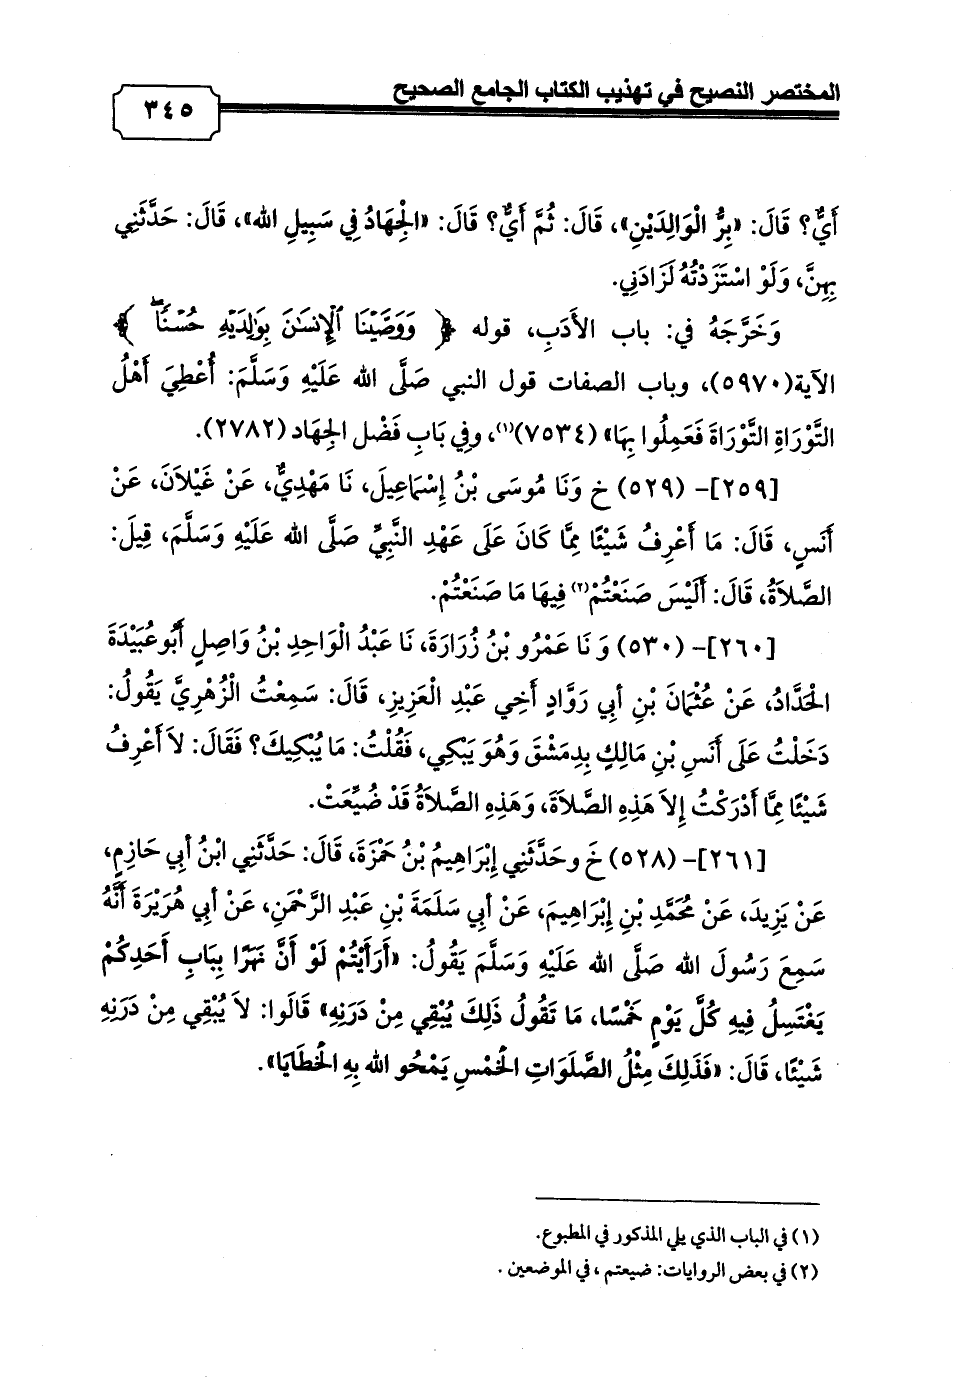 المختصر النصيح في تهذيب الكتاب الجامع الصحيح
٣٤٥
أَيٌّ؟ قَالَ: «بِرُّ الْوَالِدَيْنِ»، قَالَ: ثُمَّ أَيٌّ؟ قَالَ: «الْجِهَادُ فِي سَبِيلِ الله»، قَالَ: حَدَّثَنِي
بِهِنَّ، وَلَوْ اسْتَزَدْتُهُ لَزَادَنِي.
وَخَرَّجَهُ في: باب الأَدَبِ، قوله ﴿ وَوَصَّيْنَا ٱلْإِنسَٰنَ بِوَٰلِدَيْهِ حُسْنًا ﴾
الآية(٥٩٧٠)، وباب الصفات قول النبي صَلَّى الله عَلَيْهِ وَسَلَّمَ: أُعْطِيَ أَهْلُ
التَّوْرَاةِ التَّوْرَاةَ فَعَمِلُوا بِهَا» (٧٥٣٤)(١)، وفِي بَابِ فَضْل الجِهَاد (٢٧٨٢).
[٢٥٩]- (٥٢٩) خ وَنَا مُوسَى بْنُ إِسْمَاعِيلَ، نَا مَهْدِيٌّ، عَنْ غَيْلاَنَ، عَنْ
أَنَسٍ، قَالَ: مَا أَعْرِفُ شَيْئًا مِمَّا كَانَ عَلَى عَهْدِ النَّبِيِّ صَلَّى الله عَلَيْهِ وَسَلَّمَ، قِيلَ:
الصَّلاَةُ، قَالَ: أَلَيْسَ صَنَعْتُمْ(٢) فِيهَا مَا صَنَعْتُمْ.
[٢٦٠]- (٥٣٠) وَ نَا عَمْرُو بْنُ زُرَارَةَ، نَا عَبْدُ الْوَاحِدِ بْنُ وَاصِلٍ أَبُو عُبَيْدَةَ
الْحَدَّادُ، عَنْ عُثْمَانَ بْنِ أبي رَوَّادٍ أَخِي عَبْدِ الْعَزِيزِ، قَالَ: سَمِعْتُ الْزُهْرِيَّ يَقُولُ:
دَخَلْتُ عَلَى أَنَسِ بْنِ مَالِكٍ بِدِمَشْقَ وَهُوَ يَبْكِي، فَقُلْتُ: مَا يُبْكِيكَ؟ فَقَالَ: لاَ أَعْرِفُ
شَيْئًا مِمَّا أَدْرَكْتُ إِلاَ هَذِهِ الصَّلاَةَ، وَهَذِهِ الصَّلاَةُ قَدْ ضُيِّعَتْ.
[٢٦١]- (٥٢٨) خَ وحَدَّثَنِي إِبْرَاهِيمُ بْنُ حَمْزَةَ، قَالَ: حَدَّثَنِي ابْنُ أبي حَازِمٍ،
عَنْ يَزِيدَ، عَنْ مُحَمَّدِ بْنِ إِبْرَاهِيمَ، عَنْ أبي سَلَمَةَ بْنِ عَبْدِ الرَّحْمَنِ، عَنْ أبي هُرَيْرَةَ أَنَّهُ
سَمِعَ رَسُولَ الله صَلَّى الله عَلَيْهِ وَسَلَّمَ يَقُولُ: «أَرَأَيْتُمْ لَوْ أَنَّ نَهَرًا بِبَابِ أَحَدِكُمْ
يَغْتَسِلُ فِيهِ كُلَّ يَوْمٍ خَمْسًا، مَا تَقُولُ ذَلِكَ يُبْقِي مِنْ دَرَنِهِ» قَالُوا: لاَ يُبْقِي مِنْ دَرَنِهِ
شَيْئًا، قَالَ: «فَذَلِكَ مِثْلُ الصَّلَوَاتِ الْخَمْسِ يَمْحُو الله بِهِ الْخَطَايَا».
(١) في الباب الذي يلي المذكور في المطبوع.
(٢) في بعض الروايات: ضيعتم ، في الموضعين .